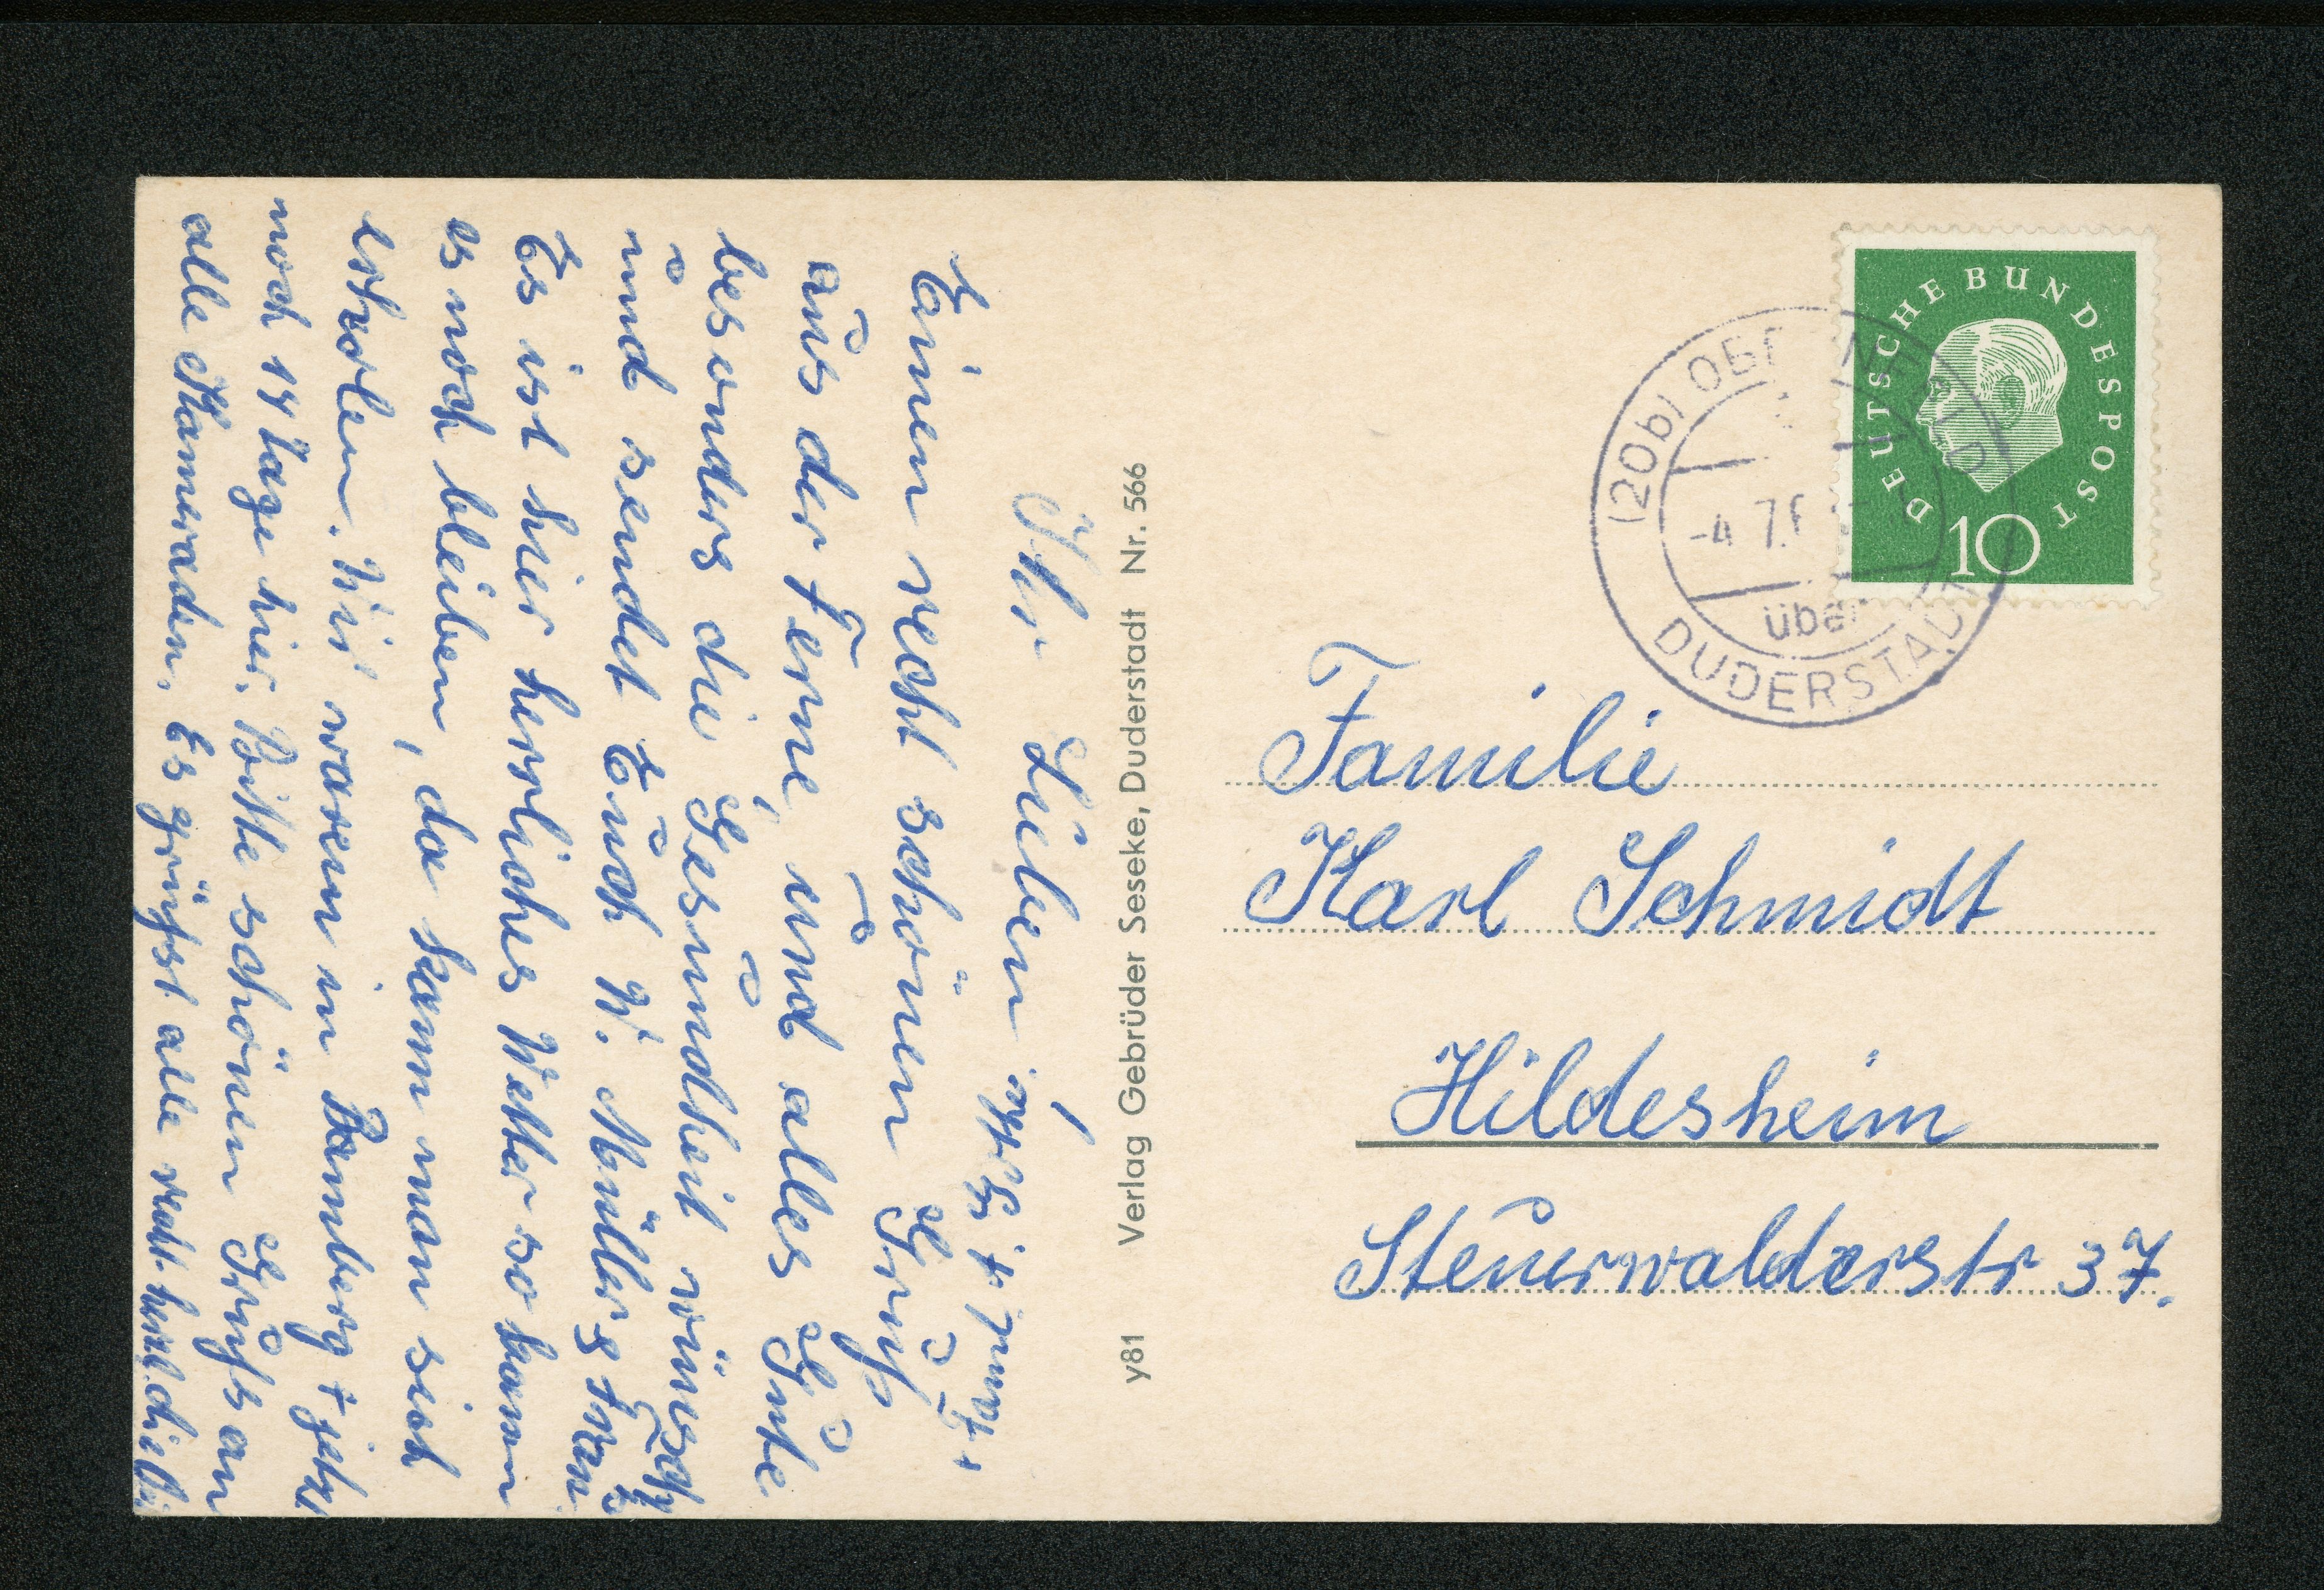 Ihr Lieben!
Einen recht schönen Gruß
aus der Ferne, und alles Gute
besonders die Gesundheit wünscht
und sendet Euch W. Müllers Frau
Es ist hier herrliches Wetter so kann
es noch bleiben, da kann man sich
erholen. Wir waren in Bamberg + jetzt
noch 14 Tage hier. Bitte schönen Gruß an
alle Kameraden. Es grüßt alle recht herzl. die
DEUTSCHE BUNDESPOST
10
(20b) OBERNFELD
-4.7.6
über
DUDERSTADT
Familie
Karl Schmidt
Hildesheim
Steuerwalderstr 37.
y81 Verlag Gebrüder Seseke, Duderstadt Nr. 566